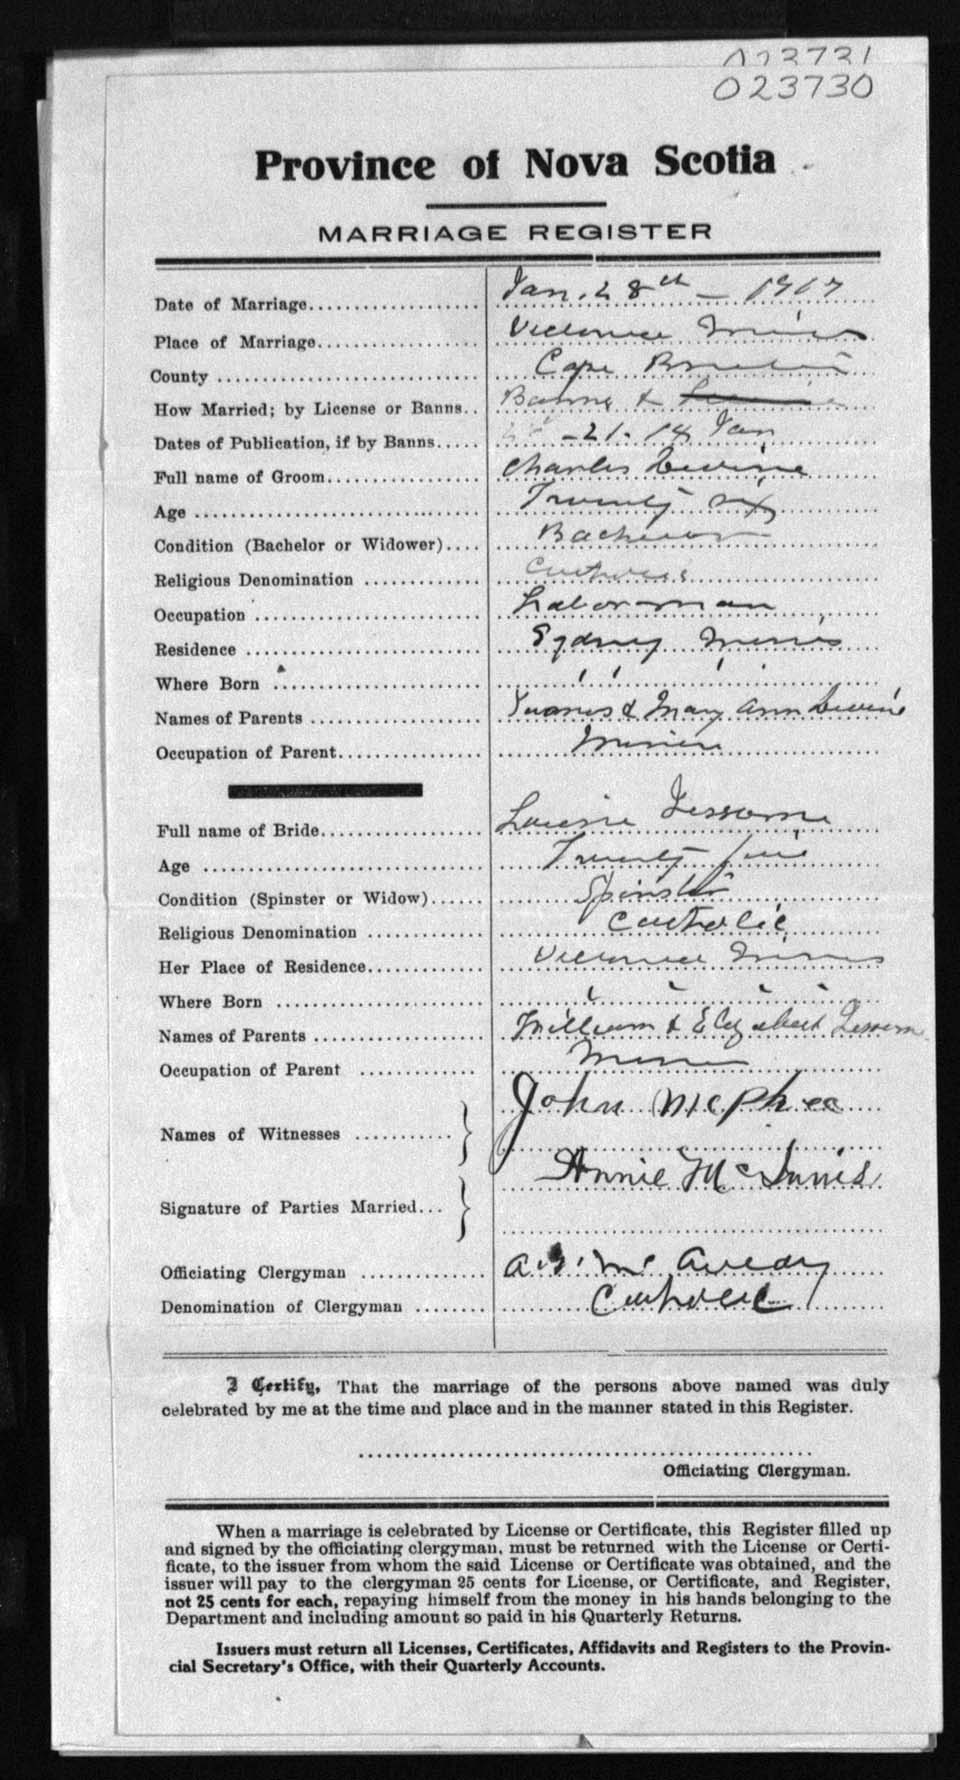 023731
023730
Province of Nova Scotia
MARRIAGE REGISTER
Date of Marriage Jan. 28th - 1917
Place of Marriage Victoria Mines
County Cape Breton
How Married; by License or Banns Banns &
Dates of Publication, if by Banns -21. 14 Jan
Full name of Groom Charles Levine
Age Twenty six
Condition (Bachelor or Widower) Bachelor
Religious Denomination Catholic
Occupation Labor-man
Residence Sydney Mines
Where Born " "
Names of Parents & Mary Ann Levine
Occupation of Parent Miner
Full name of Bride Louise Jessome
Age Twenty five
Condition (Spinster or Widow) Spinster
Religious Denomination Catholic
Her Place of Residence Victoria Mines
Where Born " "
Names of Parents William & Elizabeth Jessom
Occupation of Parent Miner
Names of Witnesses } John McPhee
Annie McInnis
Signature of Parties Married }
Officiating Clergyman
Denomination of Clergyman Catholic
I Certify, That the marriage of the persons above named was duly
celebrated by me at the time and place and in the manner stated in this Register.
Officiating Clergyman.
When a marriage is celebrated by License or Certificate, this Register filled up
and signed by the officiating clergyman, must be returned with the License or Certi-
ficate, to the issuer from whom the said License or Certificate was obtained, and the
issuer will pay to the clergyman 25 cents for License, or Certificate, and Register,
not 25 cents for each, repaying himself from the money in his hands belonging to the
Department and including amount so paid in his Quarterly Returns.
Issuers must return all Licenses, Certificates, Affidavits and Registers to the Provin-
cial Secretary's Office, with their Quarterly Accounts.